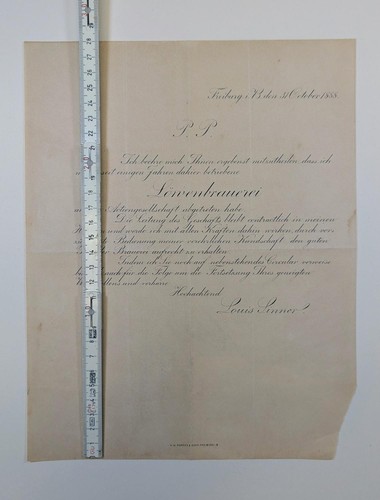 Freiburg i/B. den 31 October 1888.
P. P.
Ich beehre mich Ihnen ergebenst mitzutheilen, dass ich
seit einigen Jahren dahier betriebene
Löwenbrauerei
Actiengesellschaft abgetreten habe.
Die Leitung des Geschäfts bleibt contractlich in meinen
und werde ich mit allen Kräften dahin wirken, durch
Bedienung meiner verehrlichen Kundschaft, den guten
Brauerei aufrecht zu erhalten.
Indem ich Sie noch auf nebenstehendes Circular verweise
auch für die Folge um die Fortsetzung Ihres geneigten
und verharre
Hochachtend
Louis Sinner.